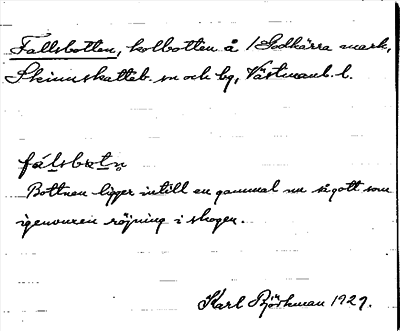 Fallsbotten, kolbotten å 1 Sodkärra mark,
Skinnskatteb. sn och bg, Västmanl. l.
fálsbotn̥
Bottnen ligger intill en gammal nu så gott som
igenvuxen röjning i skogen.
Karl Björkman 1929.